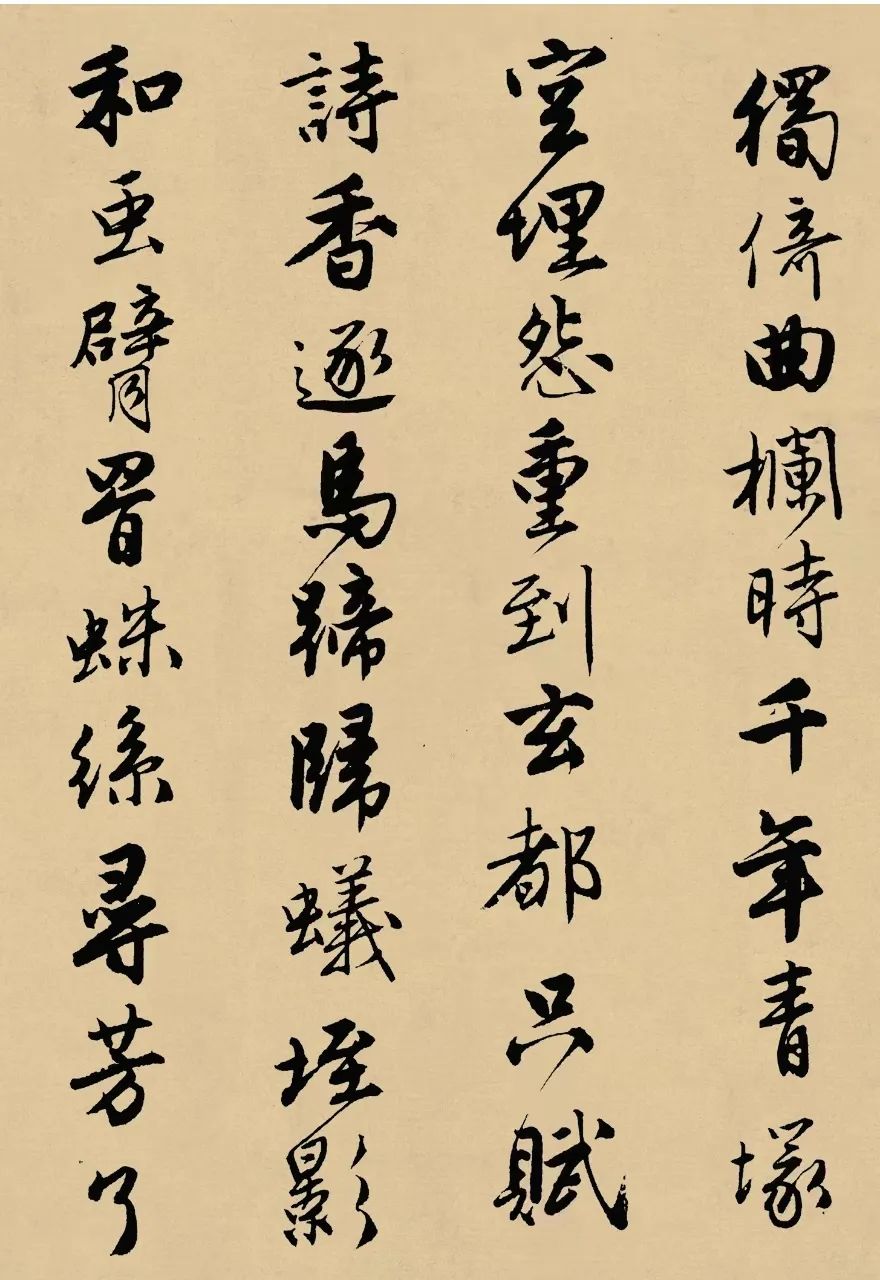 獨倚曲欄時千年青塚
空埋怨重到玄都只賦
詩香逐馬蹄歸蟻垤影
和虫臂罥蛛絲尋芳了